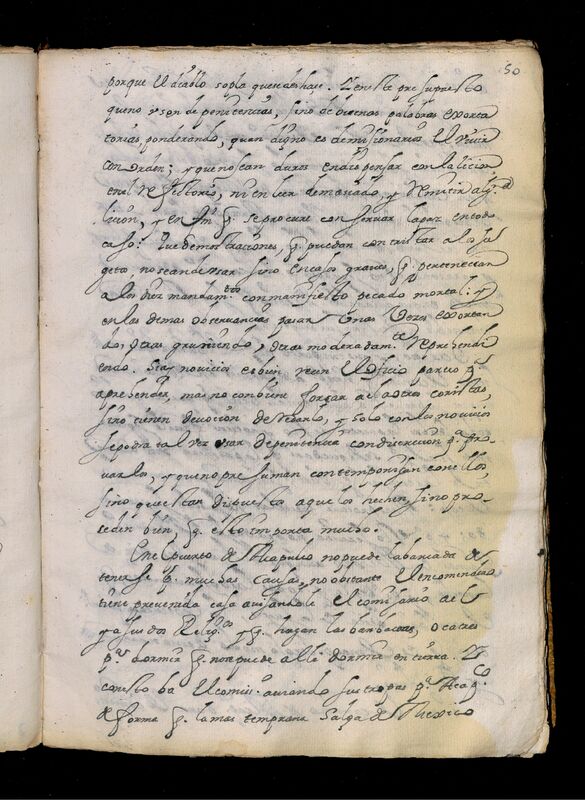 50
porque el diablo sopla quese deshase. Y en este presupuesto
que no usen de penitencias, sino de buenas palabras exorta
torias, ponderando, quan digno es de missionarios el vivir
con orden; y que no sean duros en dispensar con la licion
en el Refectorio, ni en leer demasiado, y Remitir alg.ª
licion, y en fin q. se procure conservar la paz en todo
caso. Que demostraciones, q. puedan contristar a los sa
geto, no se an de usar sino en casos graves, q. pertenescan
a los diez mandam.tos con manifiesto pecado mortal: y
en las demas observancias pasar unas vezes exortan
do, otras gruniendo, otras moderadam.te Reprehendi
endo. Si ay novicios es bien recen el oficio parvo p.ª
aprehender, mas no conbiene forçar a los otros coristas,
sino tienen devocion de rezarlo, y solo con los novicios
se podra tal vez usar de penitencia con discrecion p.ª pro
varlos, y que no presuman contemporisan con ellos,
sino que estan dispuesta a que los hechen sino pro
seden bien q. esto importa mucho.
En el puerto de Acapulco no puede la barcada de
tenerse p. muchas causas, no obstante el encomendero
tiene prevenida casa avisandole el comisario de el
y a sus dos Relig.os y q. hagan las barbacoas, o catres
p.ª dormir q. no se puede alli dormir en tierra. Y
con esto ba el comis.º aviando sus tropas p.ª Acap.co
de forma q. la mas temprana salga de Mexico